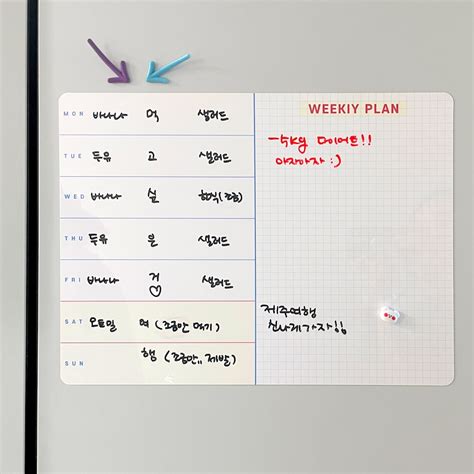 WEEKIY PLAN
MON 바나나 먹 샐러드
TUE 두유 고 샐러드
WED 바나나 싶 한식(조금)
THU 두유 은 샐러드
FRI 바나나 거 샐러드
SAT 오트밀 여 (조금만 먹기)
SUN 행 (조금만,, 제발)
-5kg 다이어트!!
아자아자 :)
제주여행
신나게가자!!